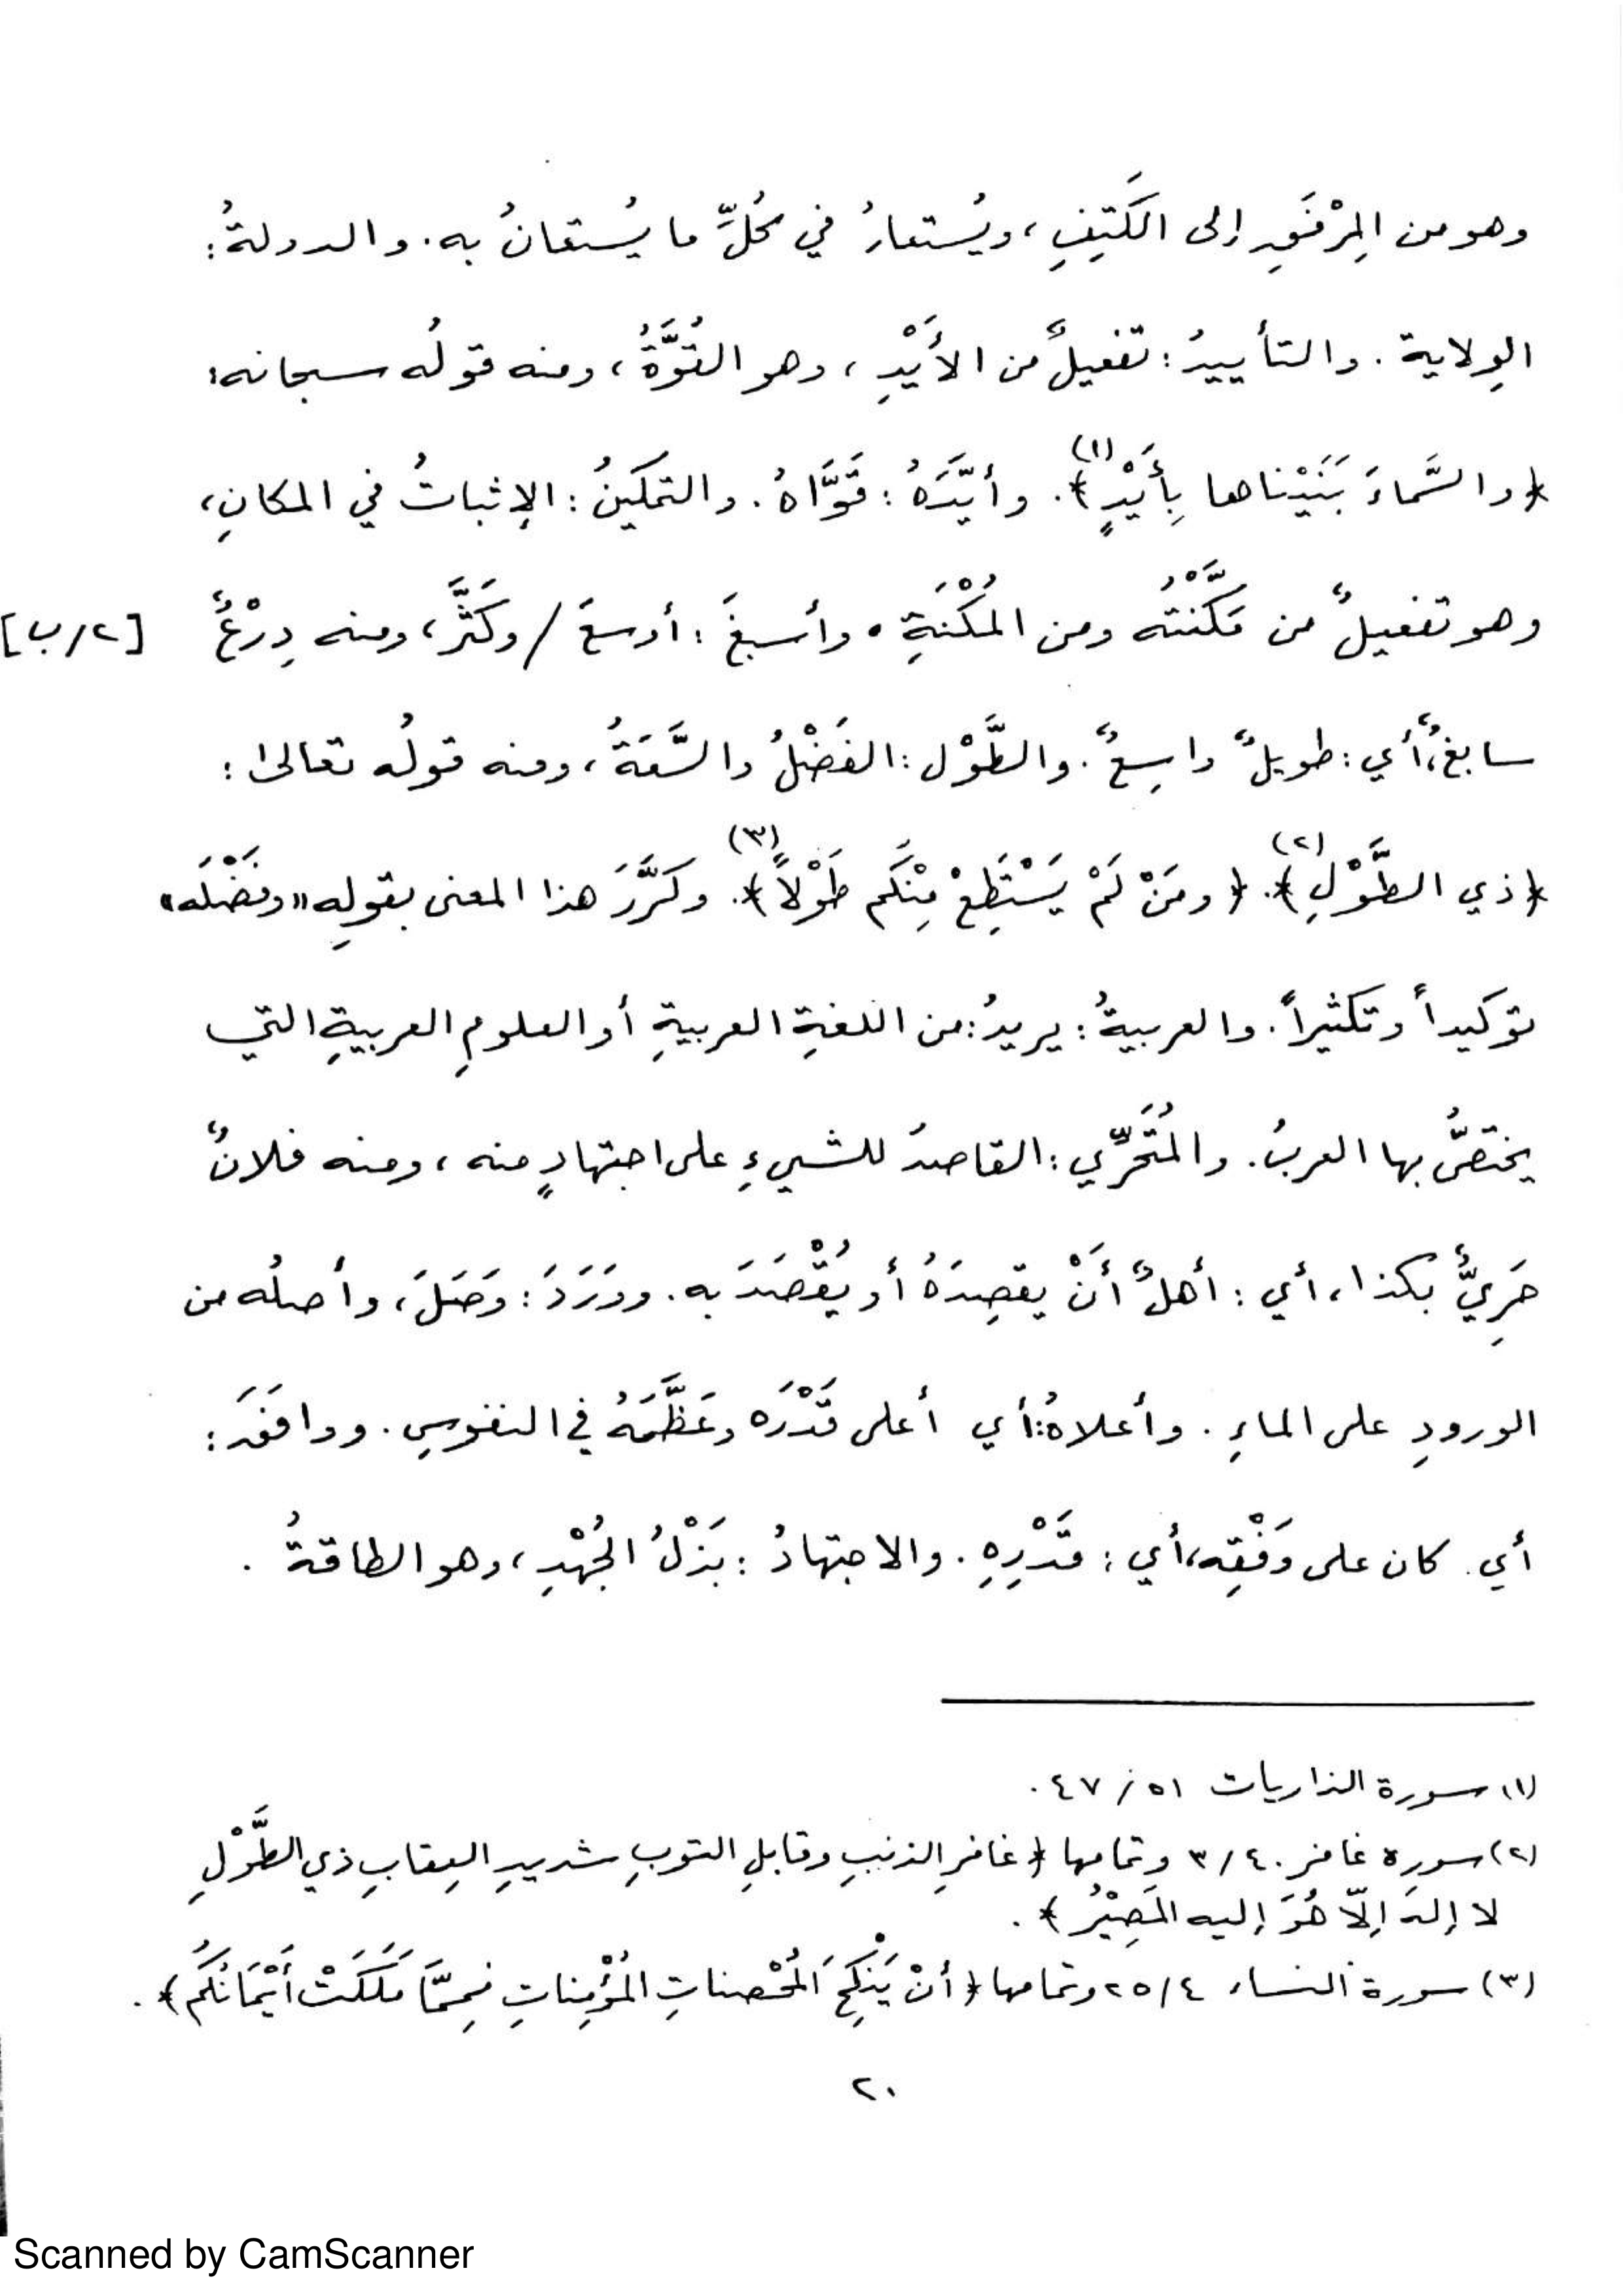 وهو من المِرْفَقِ إلى الكَتِفِ، ويُستعارُ في كُلِّ ما يُستعانُ به. والدولةُ:
الوِلاية. والتأييدُ: تفعيلٌ من الأَيْدِ، وهو القُوَّةُ، ومنه قولُه سبحانه:
﴿والسَّماءَ بَنَيْناها بِأَيْدٍ﴾(١). وأيَّدَهُ: قَوَّاهُ. والتمكينُ: الإثباتُ في المكانِ،
وهو تفعيلٌ من مَكَّنْتُه ومن المُكْنَةِ. وأسبغَ: أوسعَ / وكَثَّرَ، ومنه دِرْعٌ [٢/ب]
سابغٌ، أي: طويلٌ واسِعٌ. والطَّوْل: الفَضْلُ والسَّعَةُ، ومنه قولُه تعالى:
﴿ذي الطَّوْلِ﴾(٢). ﴿ومَنْ لَمْ يَسْتَطِعْ مِنْكُم طَوْلاً﴾(٣). وكَرَّرَ هذا المعنى بقولِه «وفَضْلَه»
توكيداً وتكثيراً. والعربيةُ: يريدُ: من اللغةِ العربيةِ أو العلومِ العربيةِ التي
يختصُّ بها العربُ. والمُتَحَرِّي: القاصدُ للشيءِ على اجتهادٍ منه، ومنه فلانٌ
حَرِيٌّ بكذا، أي: أهلٌ أَنْ يقصِدَهُ أو يُقْصَدَ به. ووَرَدَ: وَصَلَ، وأصلُه من
الورودِ على الماءِ. وأعلاهُ: أي أعلى قَدْرَه وعَظَّمَهُ في النفوسِ. ووافَقَ:
أي كان على وَفْقِه، أي: قَدْرِهِ. والاجتهادُ: بَذْلُ الجُهْدِ، وهو الطاقةُ.
(١) سورة الذاريات ٥١/٤٧.
(٢) سورة غافر ٣/٤٠ وتمامها ﴿غافرِ الذنبِ وقابلِ التوبِ شديدِ العِقابِ ذي الطَّوْلِ
لا إلهَ إلّا هُوَ إليه المَصِيْرُ﴾.
(٣) سورة النساء ٢٥/٤ وتمامها ﴿أنْ يَنْكِحَ المُحْصناتِ المُؤْمِناتِ فمِمَّا مَلَكَتْ أَيْمَانُكُم﴾.
٢٠
Scanned by CamScanner